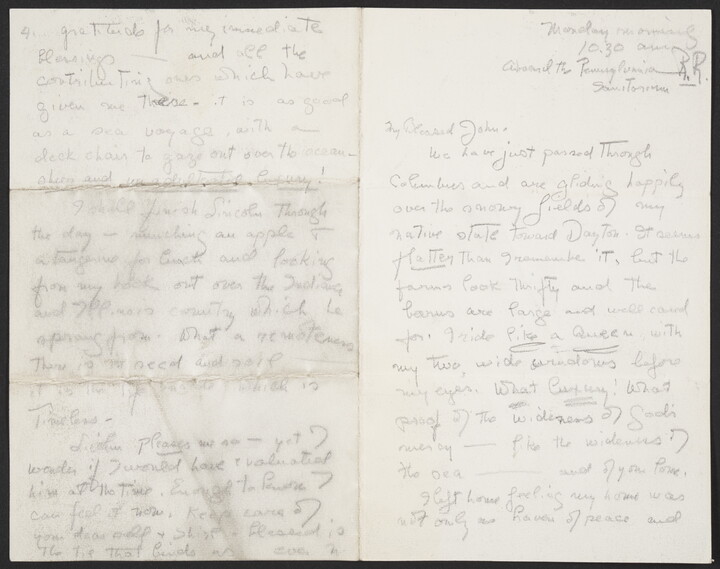 4. gratitude for my immediate
blessings — and all the
contributing ones which have
given me these - it is as good
as a sea voyage, with a
deck chair to gaze out over the ocean -
sleep and luxury!
I shall finish Lincoln through
the day - munching an apple &
a tangerine for lunch and looking
from my book out over the Indiana
and Illinois country which he
sprang from. What a remoteness
There is no seed and soil
it is the which is
Timeless -
Lincoln pleases me so - yet I
wonder if I would have evaluated
him at the time. Enough to know I
can feel it now. Keep care of
your dear self & - Blessed is
the tie that binds us even in
Monday morning
10.30 am
Aboard the Pennsylvania R.R.
Sanitorium
My Blessed John.
We have just passed through
Columbus and are gliding happily
over the snowy fields of my
native state toward Dayton. It seems
flatter than I remember it, but the
farms look thrifty and the
barns are large and well cared
for. I ride like a Queen, with
my two, wide windows before
my eyes. What luxury! What
proof of the wideness of God's
mercy — like the wideness of
the sea — and of your love.
I left home feeling my home was
not only a haven of peace and